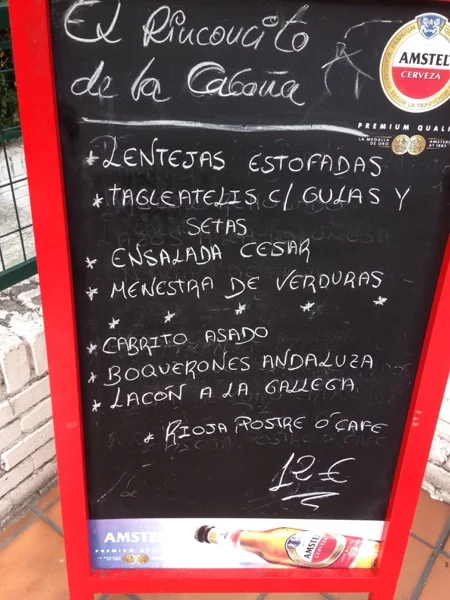 El Rinconcito
de la Cabaña
AMSTEL
CERVEZA
PREMIUM QUALI
LA MEDALLA
DE ORO
AMSTERDAM
Aº 1883
* LENTEJAS ESTOFADAS
* TAGLEATELIS C/ GULAS Y
SETAS
* ENSALADA CESAR
* MENESTRA DE VERDURAS
* * * * *
* CABRITO ASADO
* BOQUERONES ANDALUZA
* LACÓN A LA GALLEGA
* RIOJA POSTRE O CAFE
12 €
AMSTEL
PREMIUM QUA
AMSTEL
CERVEZA